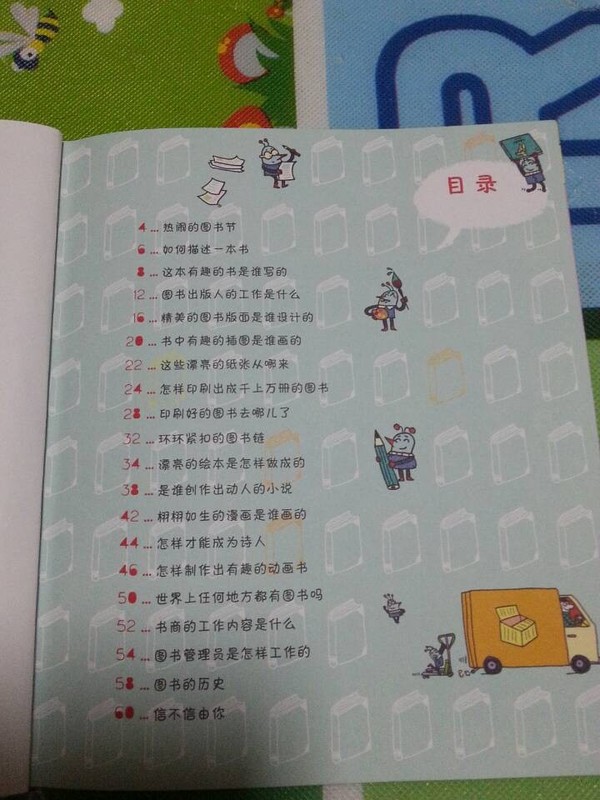 目录
4...热闹的图书节
6...如何描述一本书
8...这本有趣的书是谁写的
12...图书出版人的工作是什么
16...精美的图书版面是谁设计的
20...书中有趣的插图是谁画的
22...这些漂亮的纸张从哪来
24...怎样印刷出成千上万册的图书
28...印刷好的图书去哪儿了
32...环环紧扣的图书链
34...漂亮的绘本是怎样做成的
38...是谁创作出动人的小说
42...栩栩如生的漫画是谁画的
44...怎样才能成为诗人
46...怎样制作出有趣的动画书
50...世界上任何地方都有图书吗
52...书商的工作内容是什么
54...图书管理员是怎样工作的
58...图书的历史
60...信不信由你